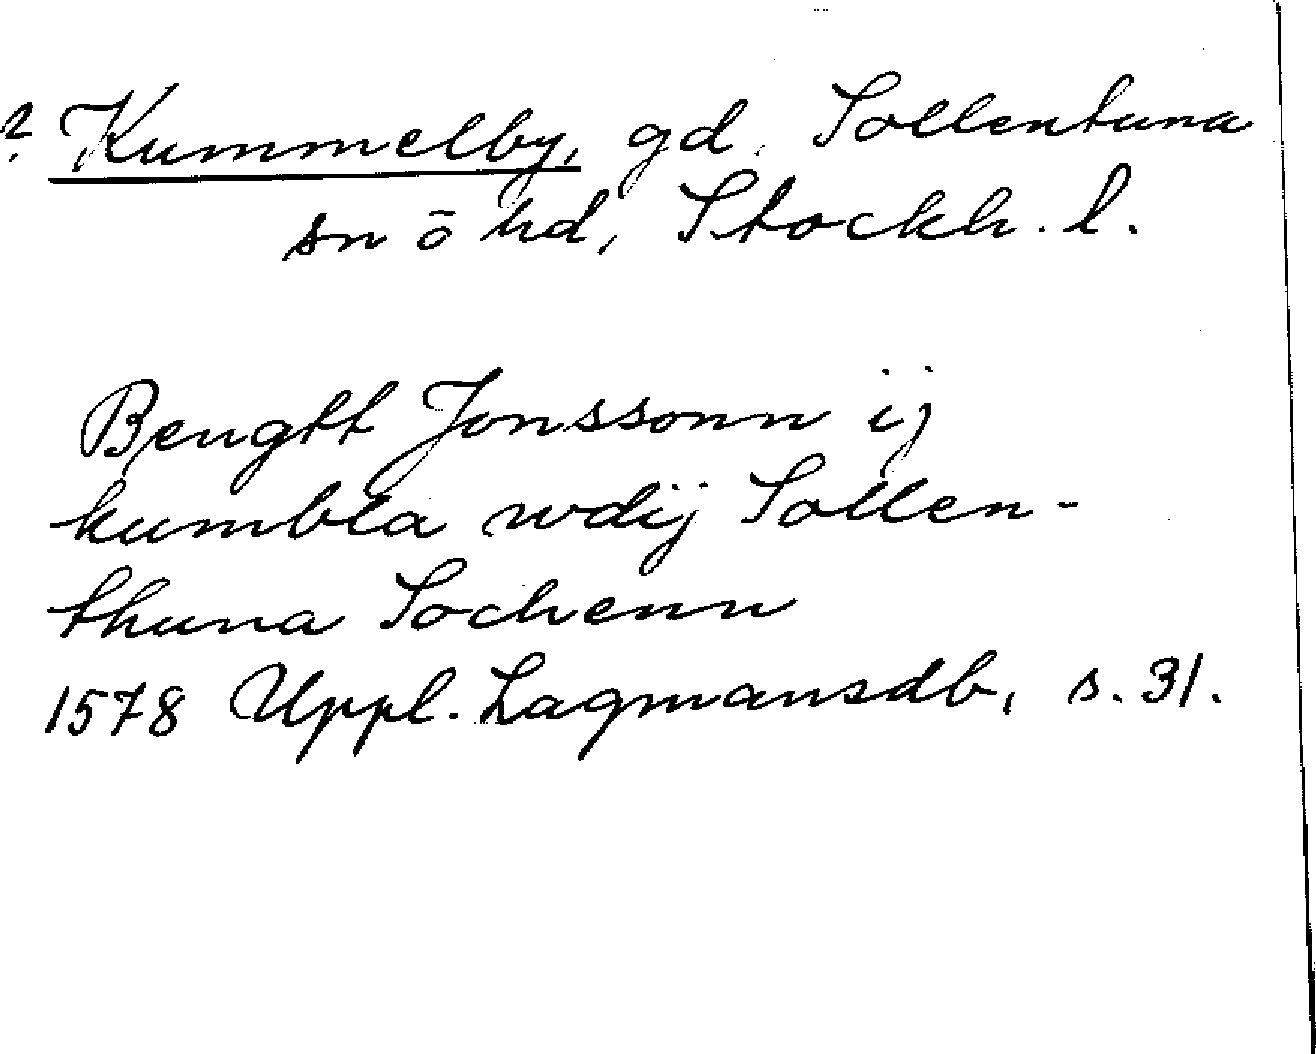 ? Kummelby, gd, Sollentuna
sn o hd, Stockh. l.
Bengtt Jonssonn ij
kumbla wdij Sollen-
thuna Sochenn
1578 Uppl. Lagmansdb, s. 31.